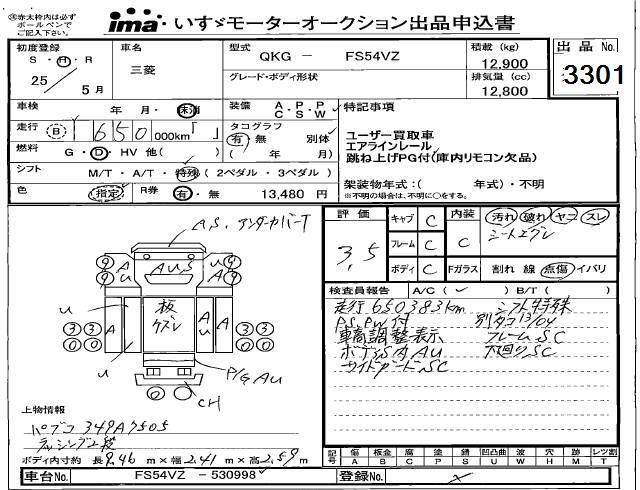 ㊟赤太枠内は必ず
ボールペンで
ご記入下さい。
ima いすゞモーターオークション出品申込書
初度登録
S・H・R
25/5月
車名
三菱
型式
QKG － FS54VZ
グレード・ボディ形状
積載 (kg)
12,900
排気量 (cc)
12,800
出品 No.
3301
車検 年・月・抹消
装備 A・P・P
C S W
走行 B 650 000km「 」
タコグラフ
有・無 別体
燃料 G・D・HV 他( ) (
シフト M/T・A/T・特殊 (2ペダル・3ペダル)
色 指定 R券 有・無 13,480 円
特記事項
ユーザー買取車
エアラインレール
跳ね上げPG付(庫内リモコン欠品)
架装物年式:( 年式)・不明
※不明の場合は、不明に○をする。
評価
3.5
キャブ C
フレーム C
ボディ C
内装 C
Fガラス
汚れ 破れ ヤニ スレ
シートエグレ
割れ 線 点傷 イバリ
検査員報告 A/C( ✓ ) B/T( )
走行650383km シフト特殊
PS,PW付 別タコ13/04
車高調整表示 フレームSC
ボデーSA AU 下廻りSC
サイドガードSC
A.S. アンダーカバーT
9 9 A U AUS A U 9 9
U
A
板
ケズレ
A U
A
3 3 3 3
U
P/G AU
CH
上物情報
パブコ 349A7505
ラッシング2段
ボディ内寸約 長9.46 m×幅2.41 m×高2.59m
記号 傷 板金 腐 塗 錆 凹凸曲 波 穴 跡 レツ割
A B C P S U W H M T
車台No. FS54VZ －530998
登録No.